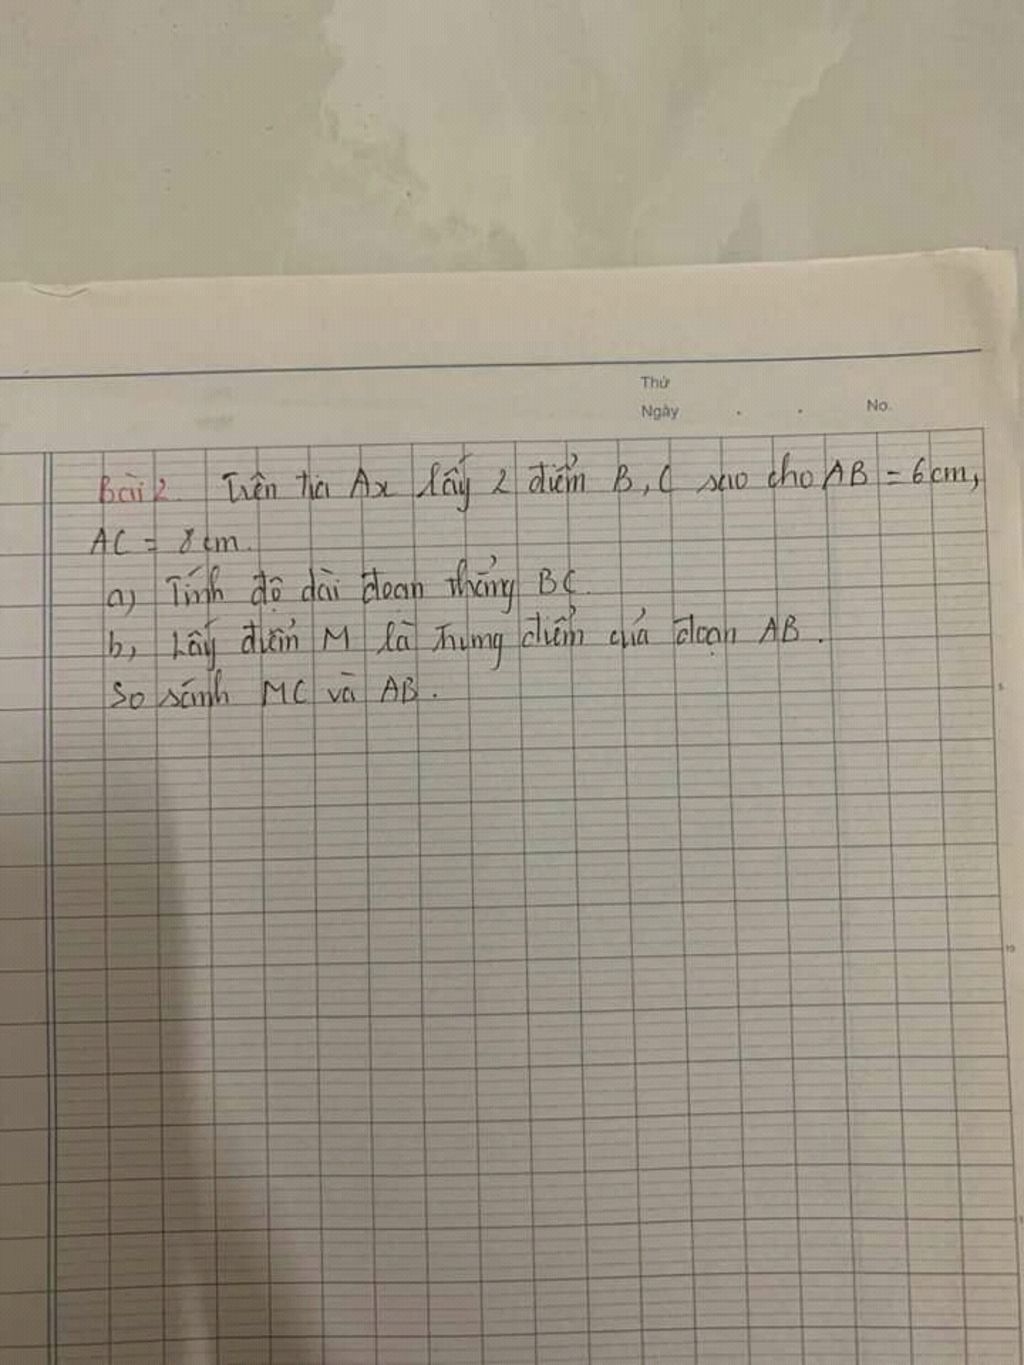 Thứ
Ngày . . No.
Bài 2. Trên tia Ax lấy 2 điểm B, C sao cho AB = 6cm,
AC = 8cm.
a) Tính độ dài đoạn thẳng BC.
b, Lấy điểm M là trung điểm của đoạn AB.
So sánh MC và AB.
5
10